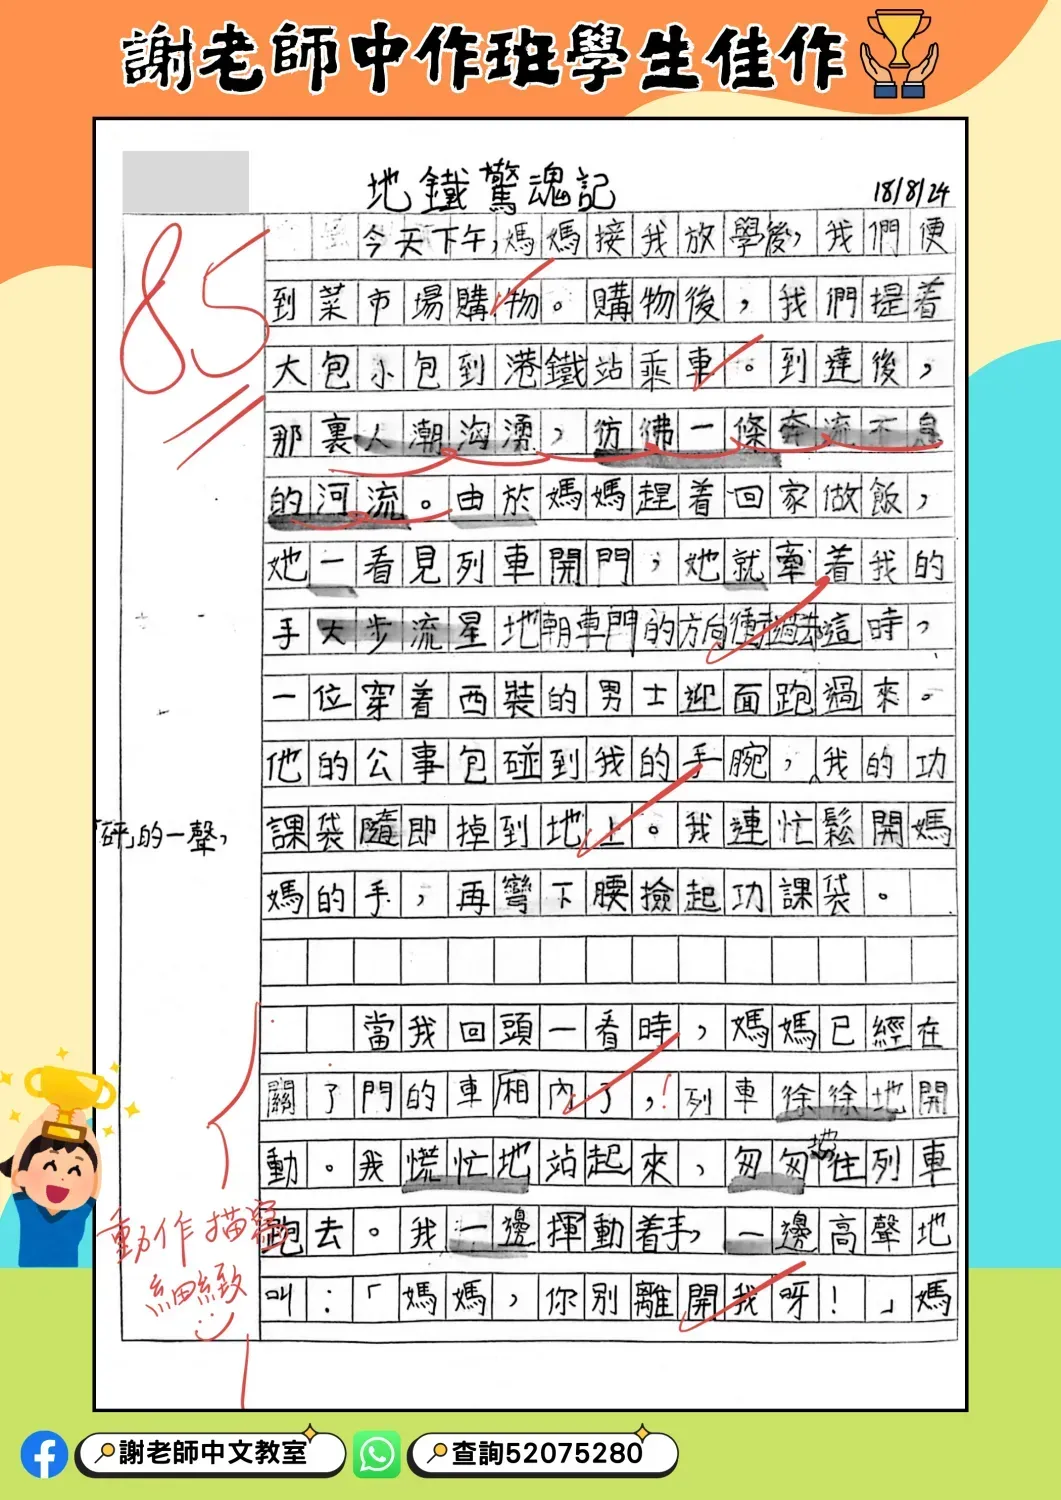 謝老師中作班學生佳作
地鐵驚魂記
18/8/24
85
今天下午,媽媽接我放學後,我們便
到菜市場購物。購物後,我們提着
大包小包到港鐵站乘車。到達後,
那裏人潮洶湧,彷彿一條奔流不息
的河流。由於媽媽趕着回家做飯,
她一看見列車開門,她就牽着我的
手大步流星地朝車門的方向衝過去這時,
一位穿着西裝的男士迎面跑過來。
他的公事包碰到我的手腕,我的功
「砰」的一聲,
課袋隨即掉到地上。我連忙鬆開媽
媽的手,再彎下腰撿起功課袋。
當我回頭一看時,媽媽已經在
關了門的車廂內了,!列車徐徐地開
動。我慌忙地站起來,匆匆地往列車
跑去。我一邊揮動着手,一邊高聲地
叫:「媽媽,你別離開我呀!」媽
動作描寫
細緻
謝老師中文教室
查詢52075280